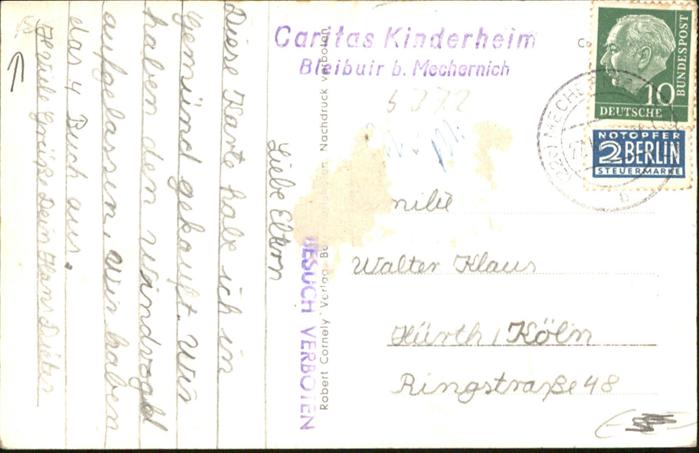 Caritas Kinderheim
Bleibuir b. Mechernich
5372
BUNDESPOST
10
DEUTSCHE
NOTOPFER
2 BERLIN
STEUERMARKE
MECHE
Liebe Eltern
Diese Karte habe ich in
Gemünd gekauft. Wir
haben den wandvogel
aufgelassen, wir haben
das 4 Buch aus.
Grüße Dein Hans Dieter
BESUCH VERBOTEN
Robert Cornely Verlag
Nachdruck verboten
Familie
Walter Klaus
Hürth / Köln
Ringstraße 48